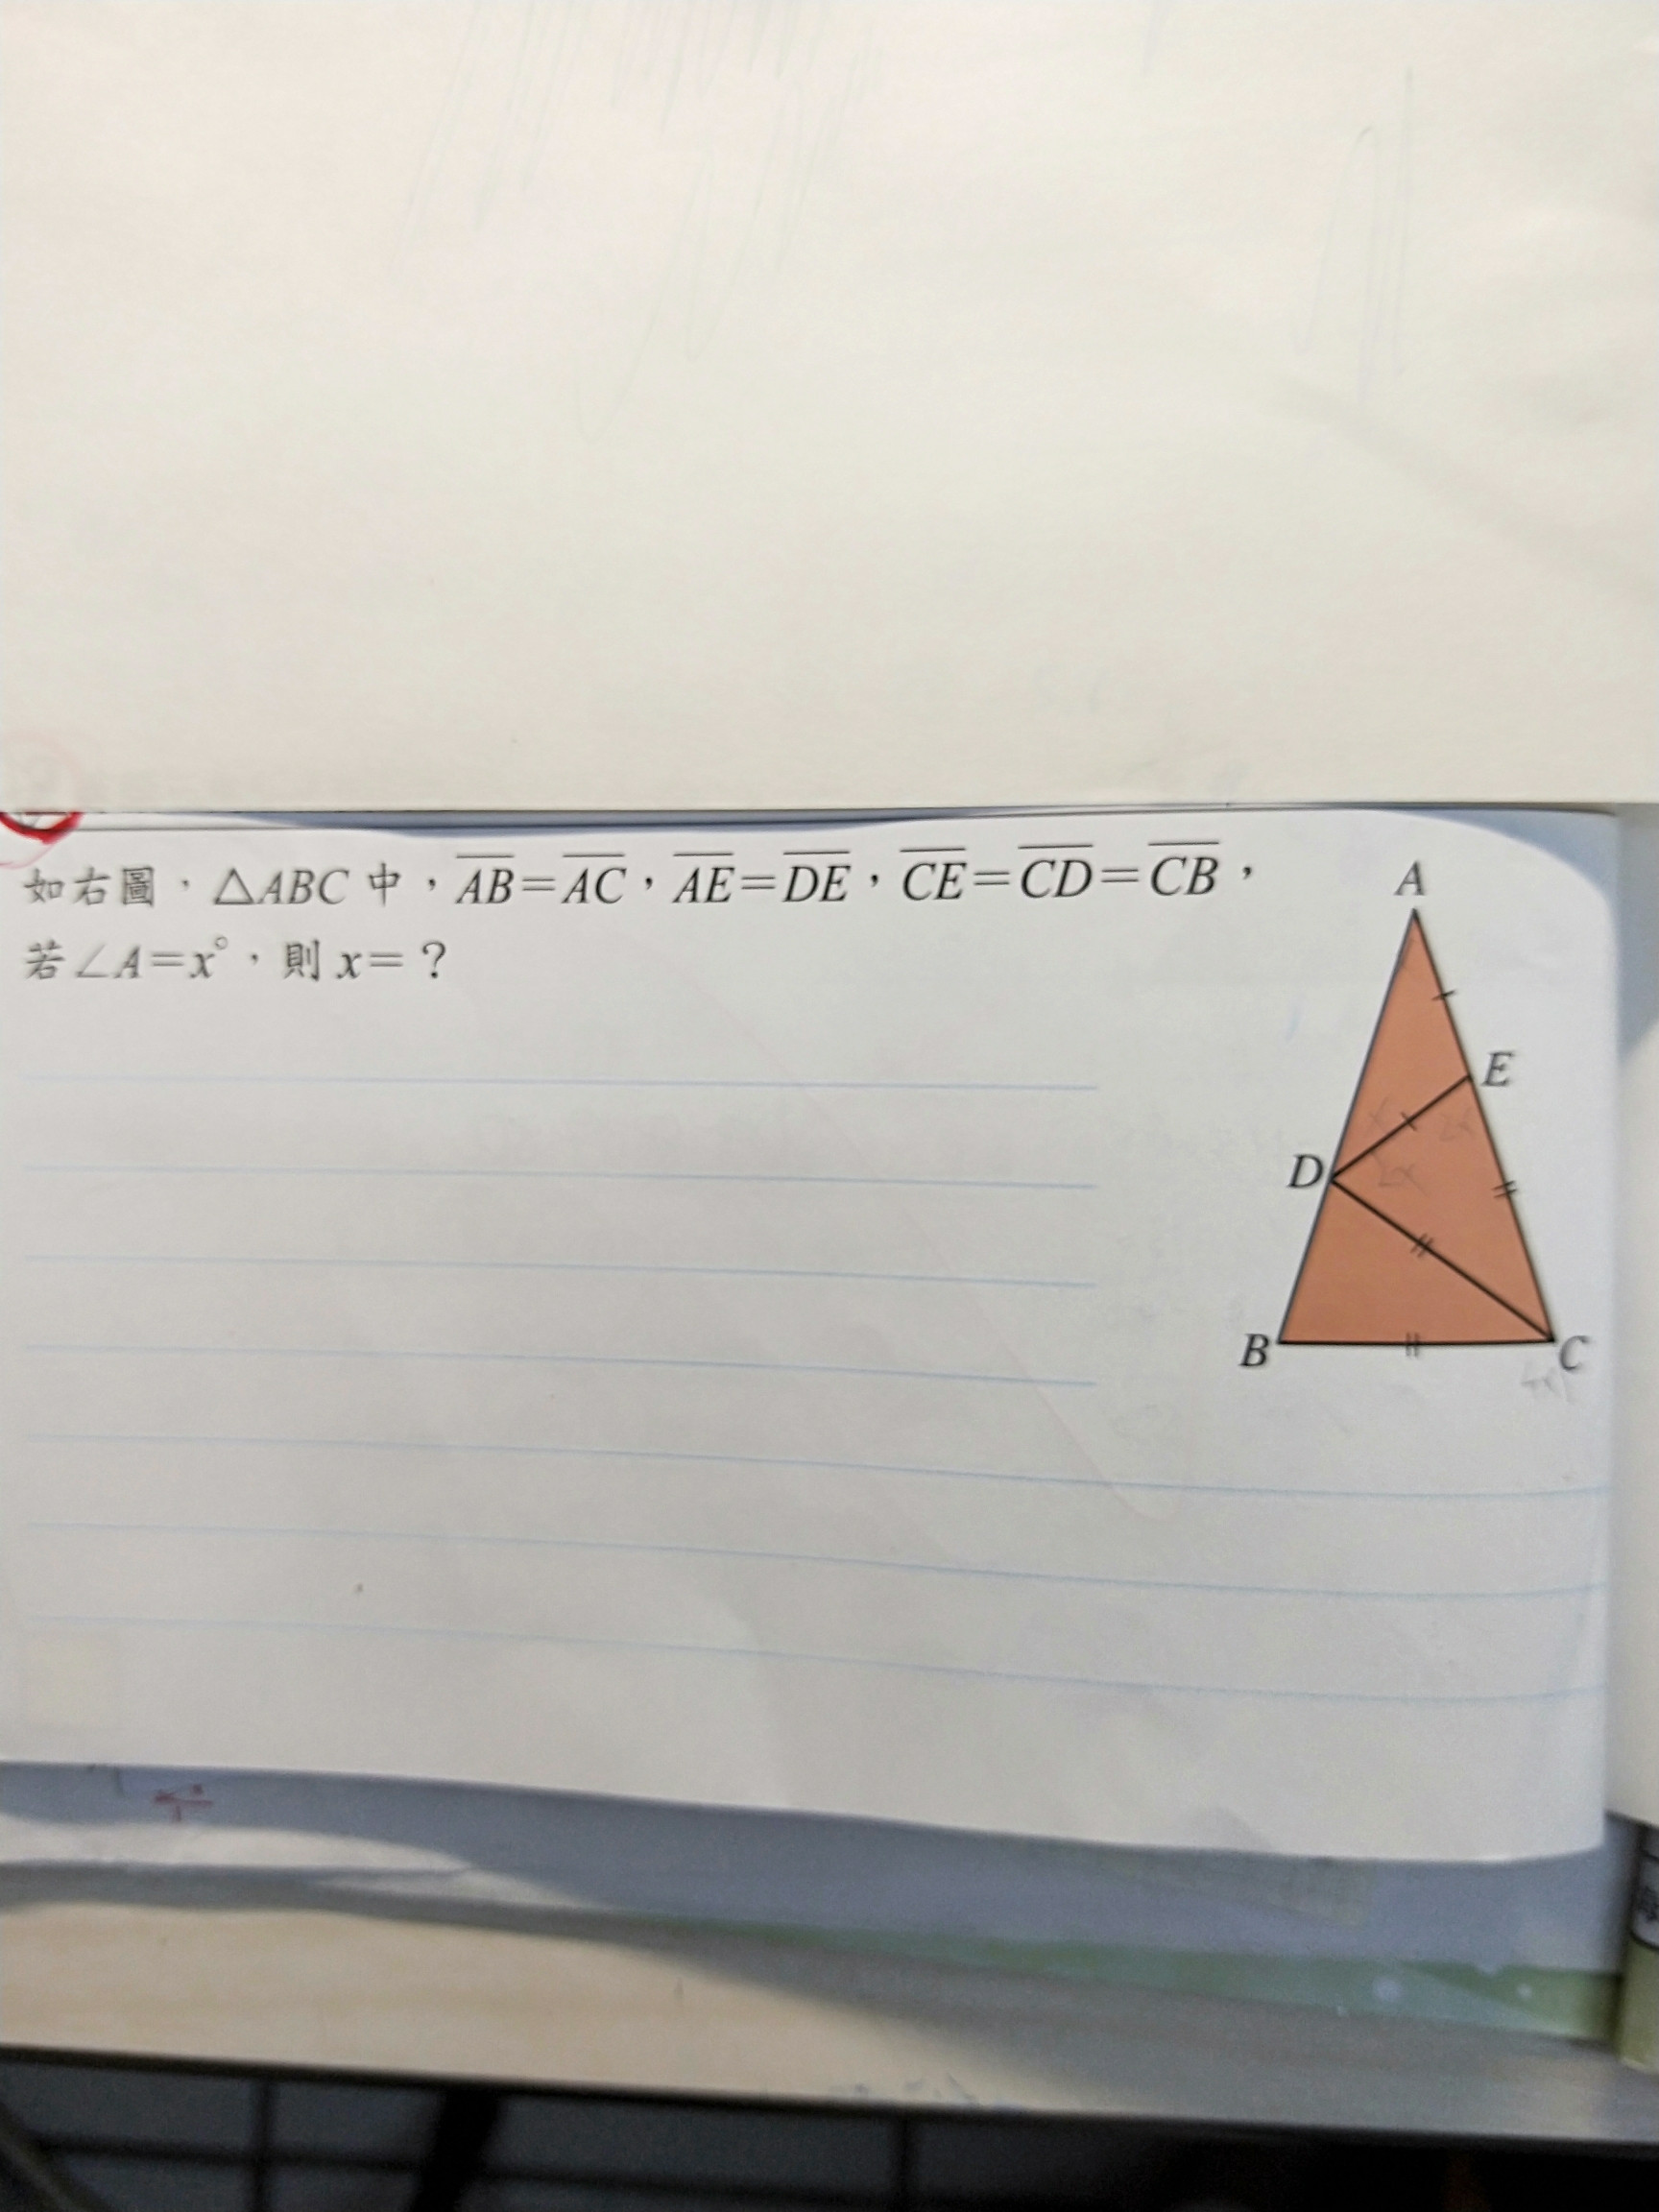 如右圖，△ABC 中，AB=AC，AE=DE，CE=CD=CB，
若∠A=x°，則 x=？
A
E
x 2x
D 2x
B C
4x